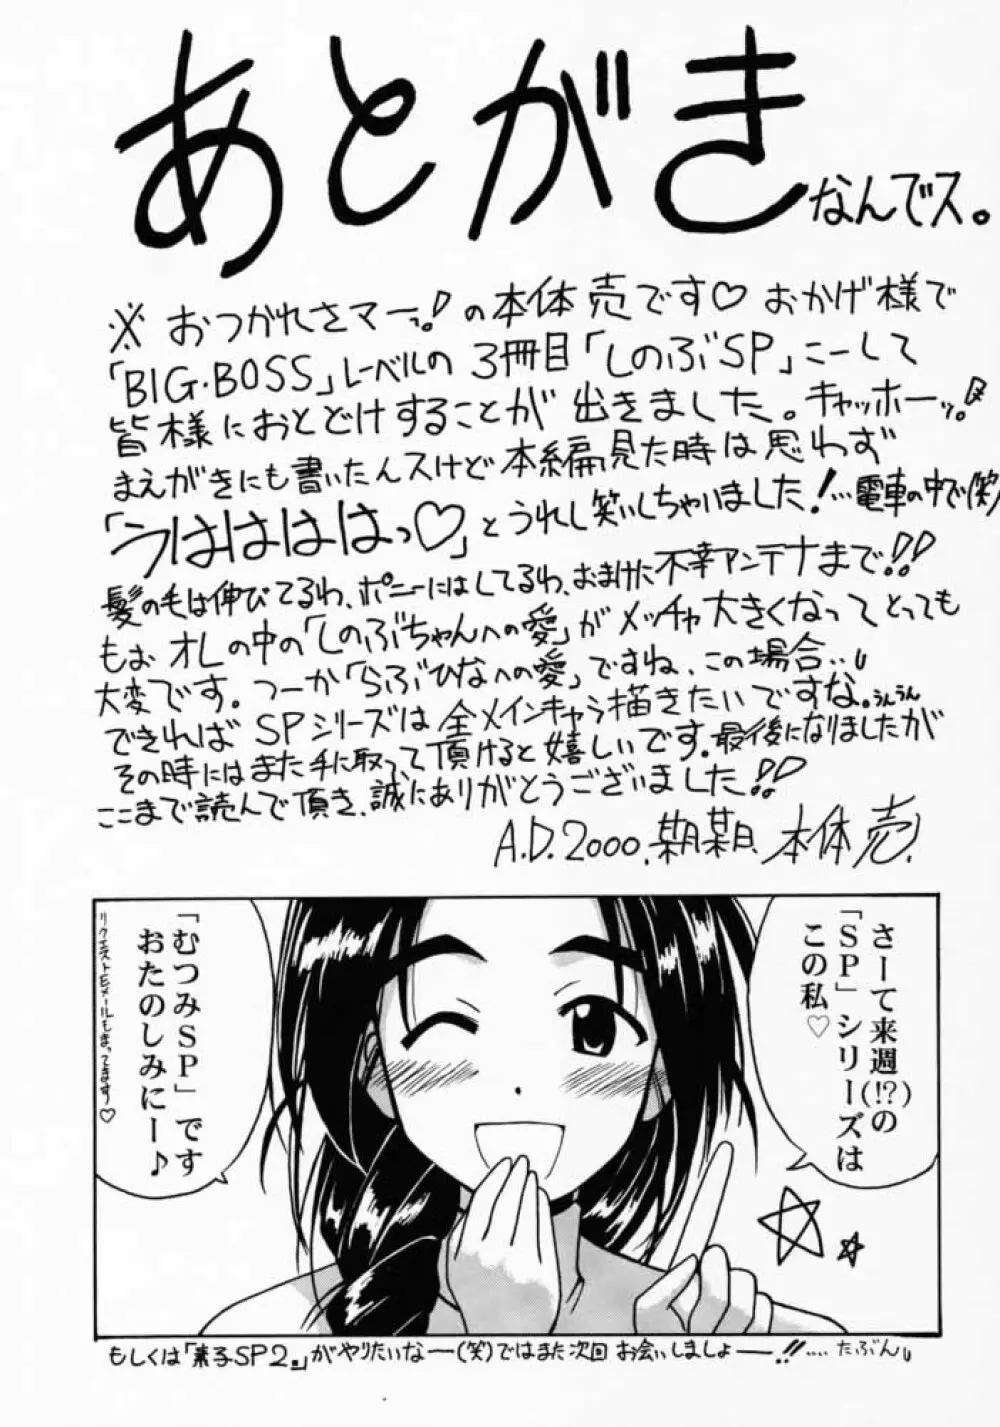 あとがき なんでス。
※おつかれさマーっ!の本体売です♡おかげ様で
「BIG・BOSS」レーベルの3冊目「しのぶSP」こーして
皆様におとどけすることが出きました。キャッホーッ!
まえがきにも書いたんスけど本編見た時は思わず
「うはははっ♡」とうれし笑いしちゃいました!…電車の中で(笑)
髪の毛は伸びてるわ、ポニーにはしてるわ、おまけに不幸アンテナまで!!
もおオレの中の「しのぶちゃんへの愛」がメッチャ大きくなってとっても
大変です。つーか「らぶひなへの愛」ですね、この場合…。
できればSPシリーズは全メインキャラ描きたいですな。うんうん
その時にはまた手に取って頂けると嬉しいです。最後になりましたが
ここまで読んで頂き、誠にありがとうございました!!
A.D.2000.某月某日 本体売.
さーて来週(!?)の
「SP」シリーズは
この私♡
「むつみSP」です
おたのしみにー♪
リクエストEメールもまってます♡
もしくは「素子SP2。」がやりたいなー(笑)ではまた次回お会いしましょーー!!‥‥たぶん。